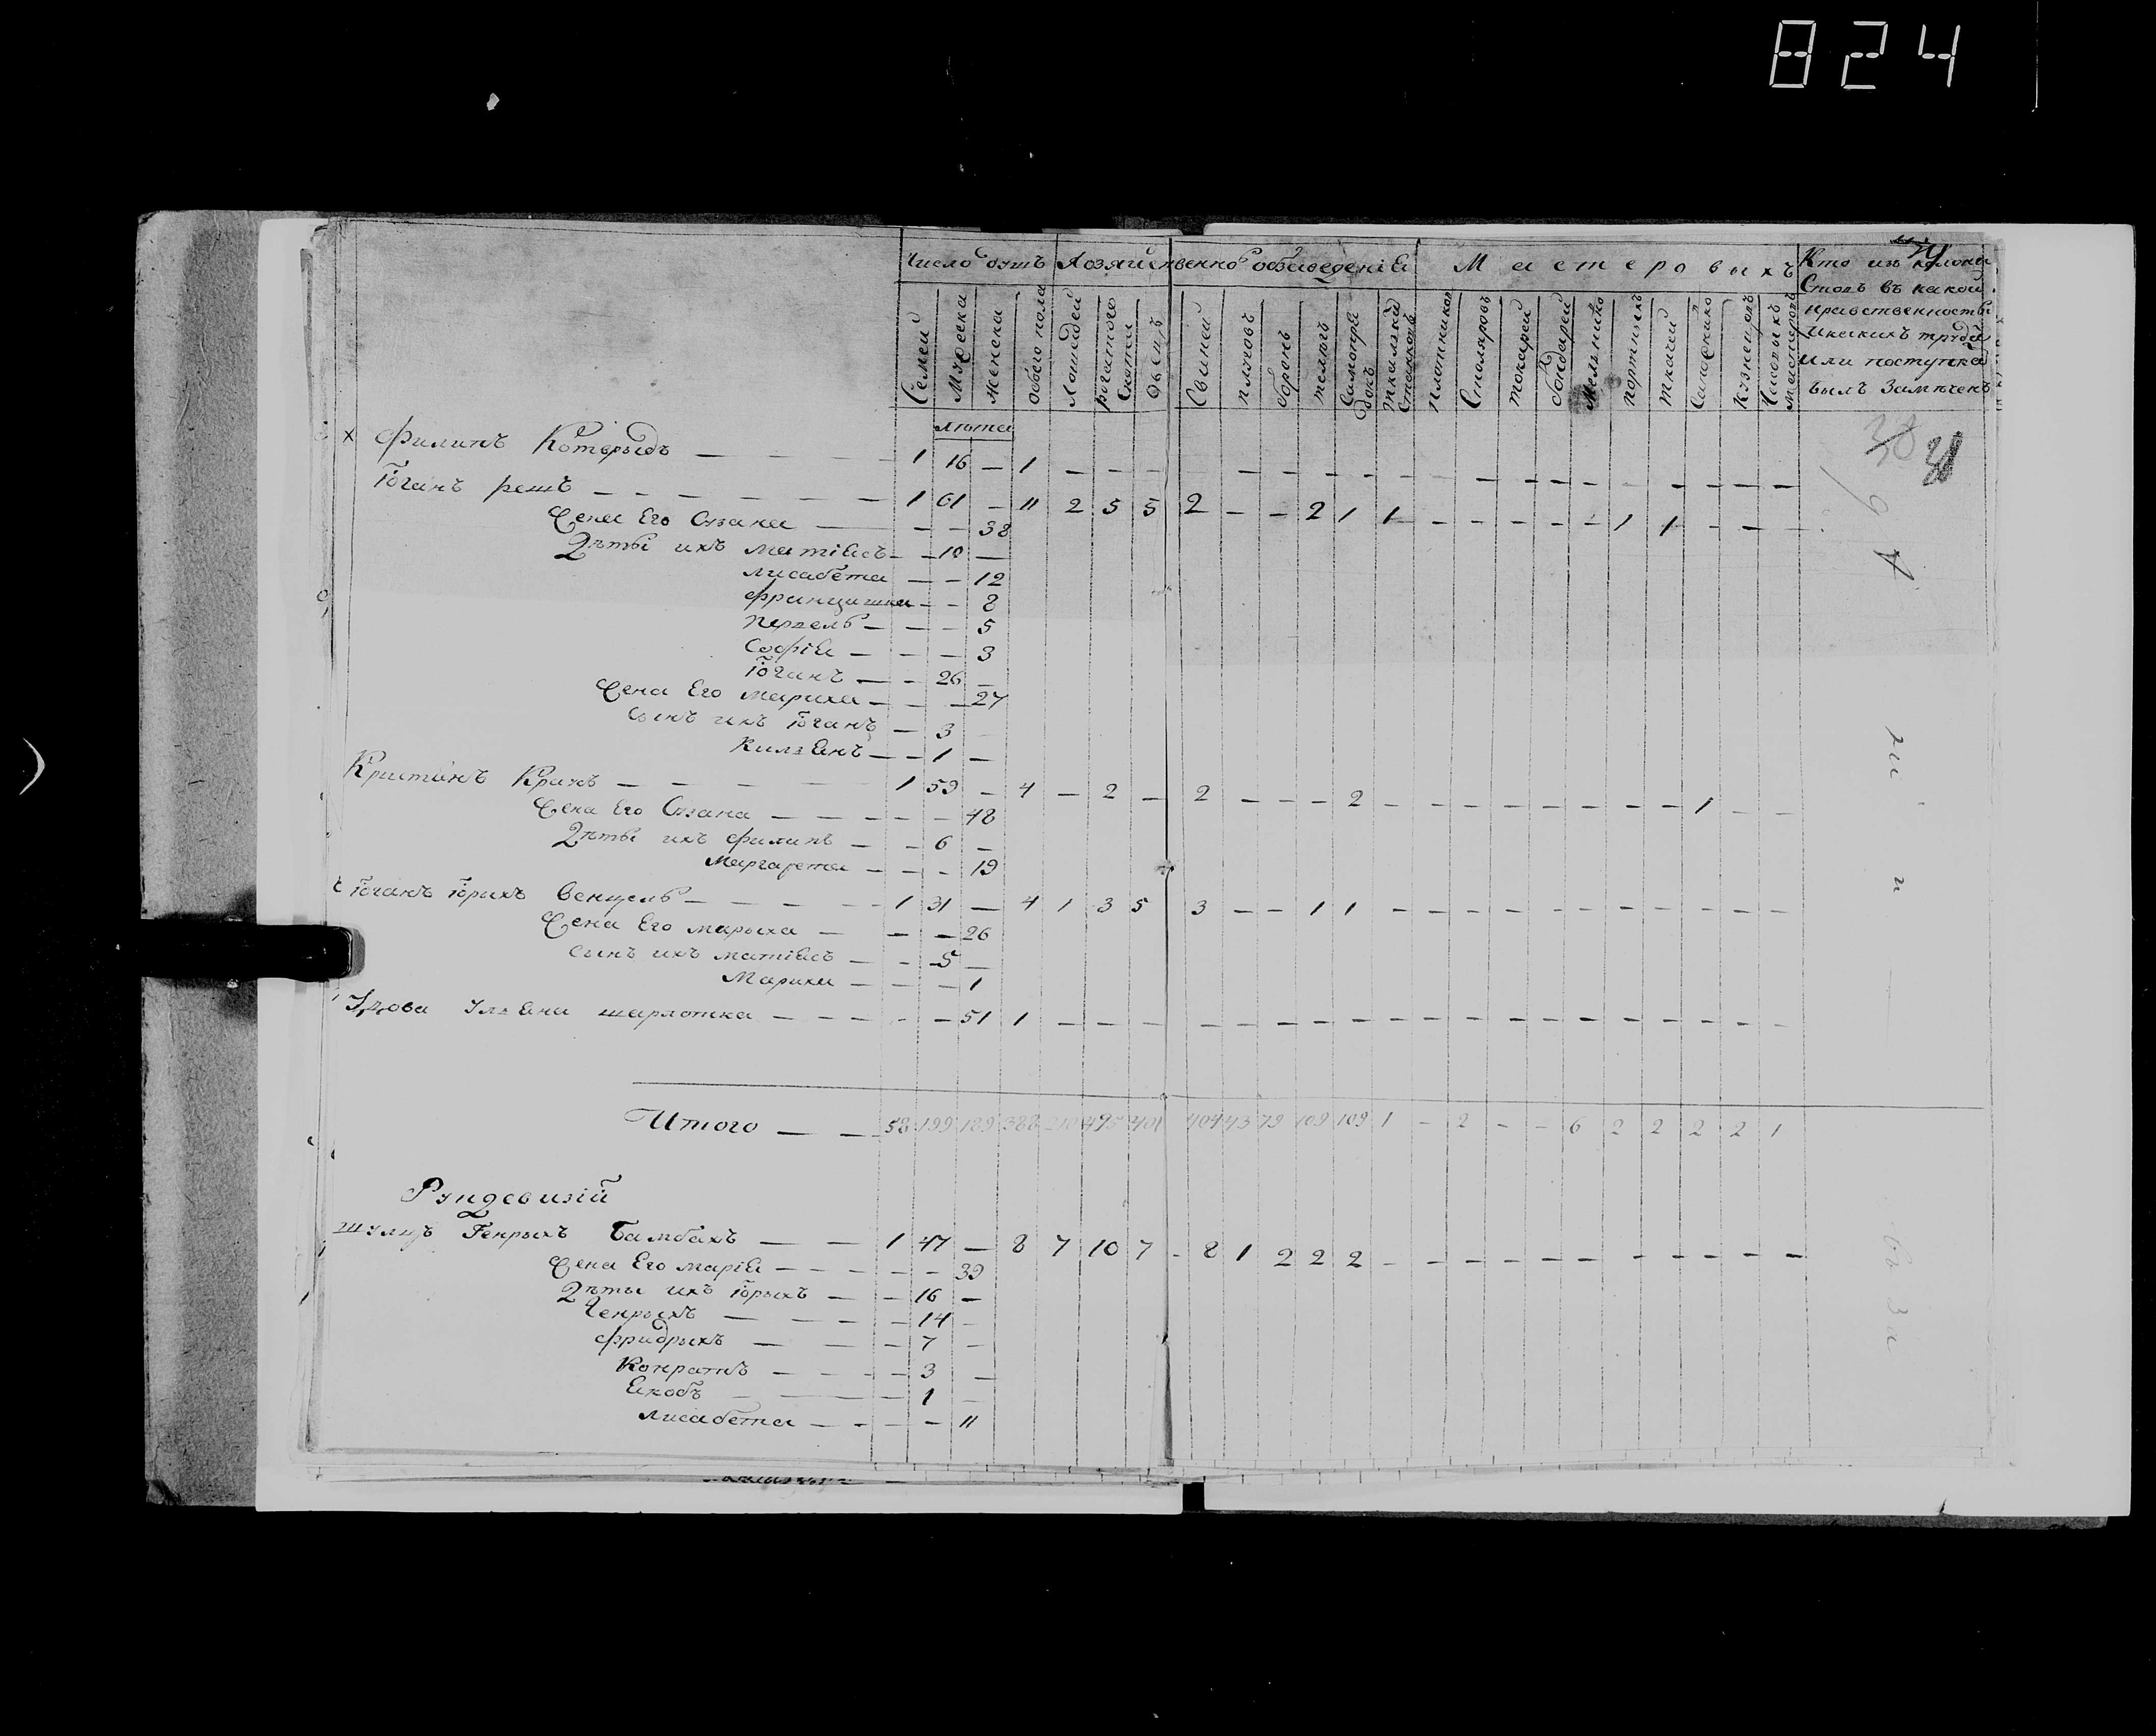 824
Число душъ Хозяйственнѣ обзаведенія Мастеровыхъ Кто изъ колони
стовъ въ какой
нравственности
или поступка
былъ Замѣченъ
Семей Мужеска Женска Обоего пола Лошадей рогатого скота Овецъ Свиней плуговъ боронъ телѣгъ Самопря докъ ткальнѣ Станковъ плотниковъ Столяровъ токарей бондарей Мельнико портныхъ ткачей Сапожнико Кузнецовъ Часовыхъ мастеровъ
лѣта
38
х Филипъ — — — — 1 16 — 1 — — — — — — — — — — — — — — — — — — —
Іоганъ решъ — — — — — — — 1 61 — 11 2 5 5 2 — — 2 1 1 — — — — — 1 1 — — —
Жена Его Сузана — — — 38
Дѣти ихъ матіясъ — — 10 —
лисабета — — 12
францишка — — 8
— — — 5
Софія — — — 3
Іоганъ — — 26 —
Жена Его Марика — — — 27
Сынъ ихъ Іоганъ — 3 —
Килѣянъ — — 1 —
Кристьянъ Крамъ — — — — 1 59 — 4 — 2 — 2 — — — 2 — — — — — — — — — 1 — —
Жена Его Сузана — — — — — — 48
Дѣти ихъ Филипъ — — 6 —
Маргарета — — — 19
Іоганъ Іорихъ Венцель — — — — — 1 31 — 4 1 3 5 3 — — 1 1 — — — — — — — — — — —
Жена Его марыха — — — 26
Сынъ ихъ матіясъ — — 5 —
Марика — — — — 1
Удова Улѣяна шарлотка — — — — — 51 1 — — — — — — — — — — — — — — — — — — —
Итого — — 58 199 189 388 210 495 401 404 43 79 109 109 1 — 2 — — 6 2 2 2 2 1
Рундевизій
шулцъ Генрыхъ Бамбахъ — — 1 47 — 8 7 10 7 8 1 2 2 2 — — — — — — — — — — —
Жена Его Марія — — — — — 39
Дѣти ихъ Іорыхъ — — 16 —
Генрыхъ — — — — — 14 —
фридрыхъ — — — 7 —
Конратъ — — — — 3 —
Якобъ — — — 1 —
лисабета — — — — 11